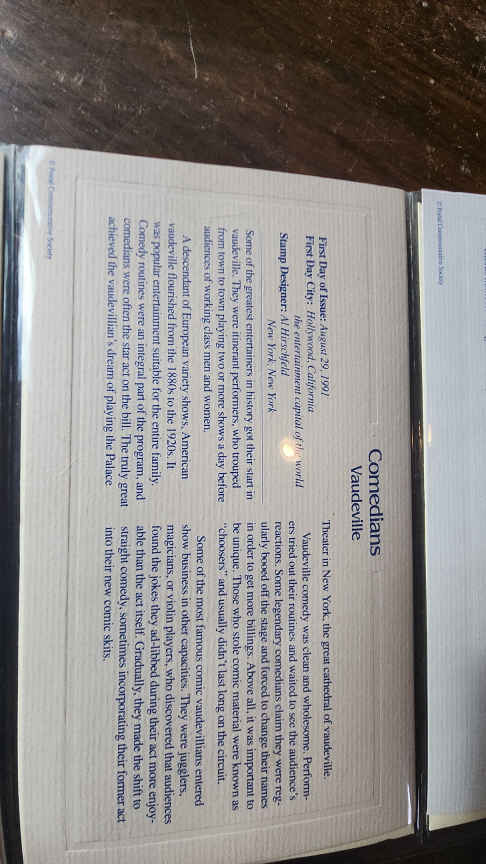 Comedians
Vaudeville
First Day of Issue: August 29, 1991
First Day City: Hollywood, California
the entertainment capital of the world
Stamp Designer: Al Hirschfeld
New York, New York
Some of the greatest entertainers in history got their start in
vaudeville. They were itinerant performers, who trouped
from town to town playing two or more shows a day before
audiences of working class men and women.
A descendant of European variety shows, American
vaudeville flourished from the 1880s to the 1920s. It
was popular entertainment suitable for the entire family.
Comedy routines were an integral part of the program, and
comedians were often the star act on the bill. The truly great
achieved the vaudevillian's dream of playing the Palace
Theater in New York, the great cathedral of vaudeville.
Vaudeville comedy was clean and wholesome. Perform-
ers tried out their routines and waited to see the audience's
reactions. Some legendary comedians claim they were reg-
ularly booed off the stage and forced to change their names
in order to get more billings. Above all, it was important to
be unique. Those who stole comic material were known as
"choosers" and usually didn't last long on the circuit.
Some of the most famous comic vaudevillians entered
show business in other capacities. They were jugglers,
magicians, or violin players, who discovered that audiences
found the jokes they ad-libbed during their act more enjoy-
able than the act itself. Gradually, they made the shift to
straight comedy, sometimes incorporating their former act
into their new comic skits.
© Postal Commemorative Society
© Postal Commemorative Society